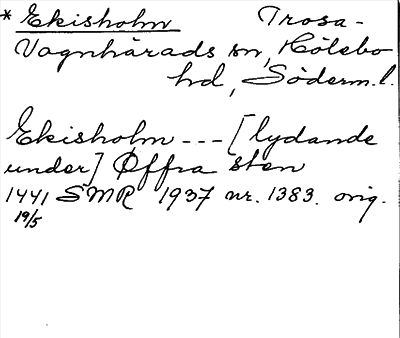 * Ekisholm Trosa-
Vagnhärads sn, Hölebo
hd, Söderm.l.
Ekisholm --- [lydande
under] Øffra sten
1441 SMR 1937 nr. 1383. orig.
19/5